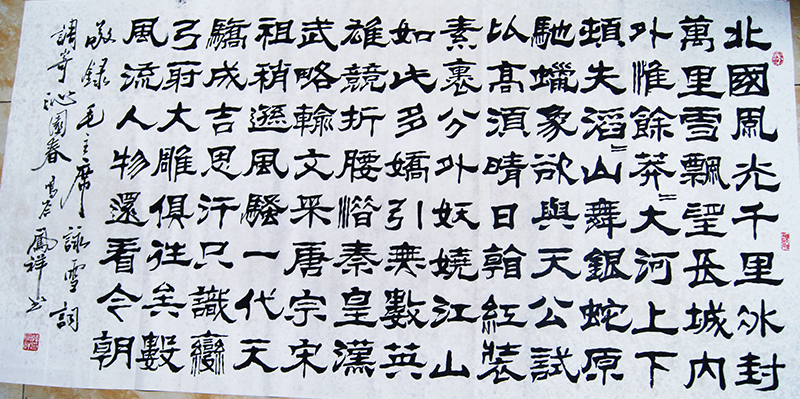 北國風光千里冰封
萬里雪飄望長城內
外惟餘莽〻大河上下
頓失滔〻山舞銀蛇原
馳蠟象欲與天公試
比高須晴日看紅裝
素裹分外妖嬈江山
如此多嬌引無數英
雄競折腰惜秦皇漢
武略輸文采唐宗宋
祖稍遜風騷一代天
驕成吉思汗只識彎
弓射大雕俱往矣數
風流人物還看今朝
敬録毛主席詠雪詞
調寄沁園春 鳳祥书